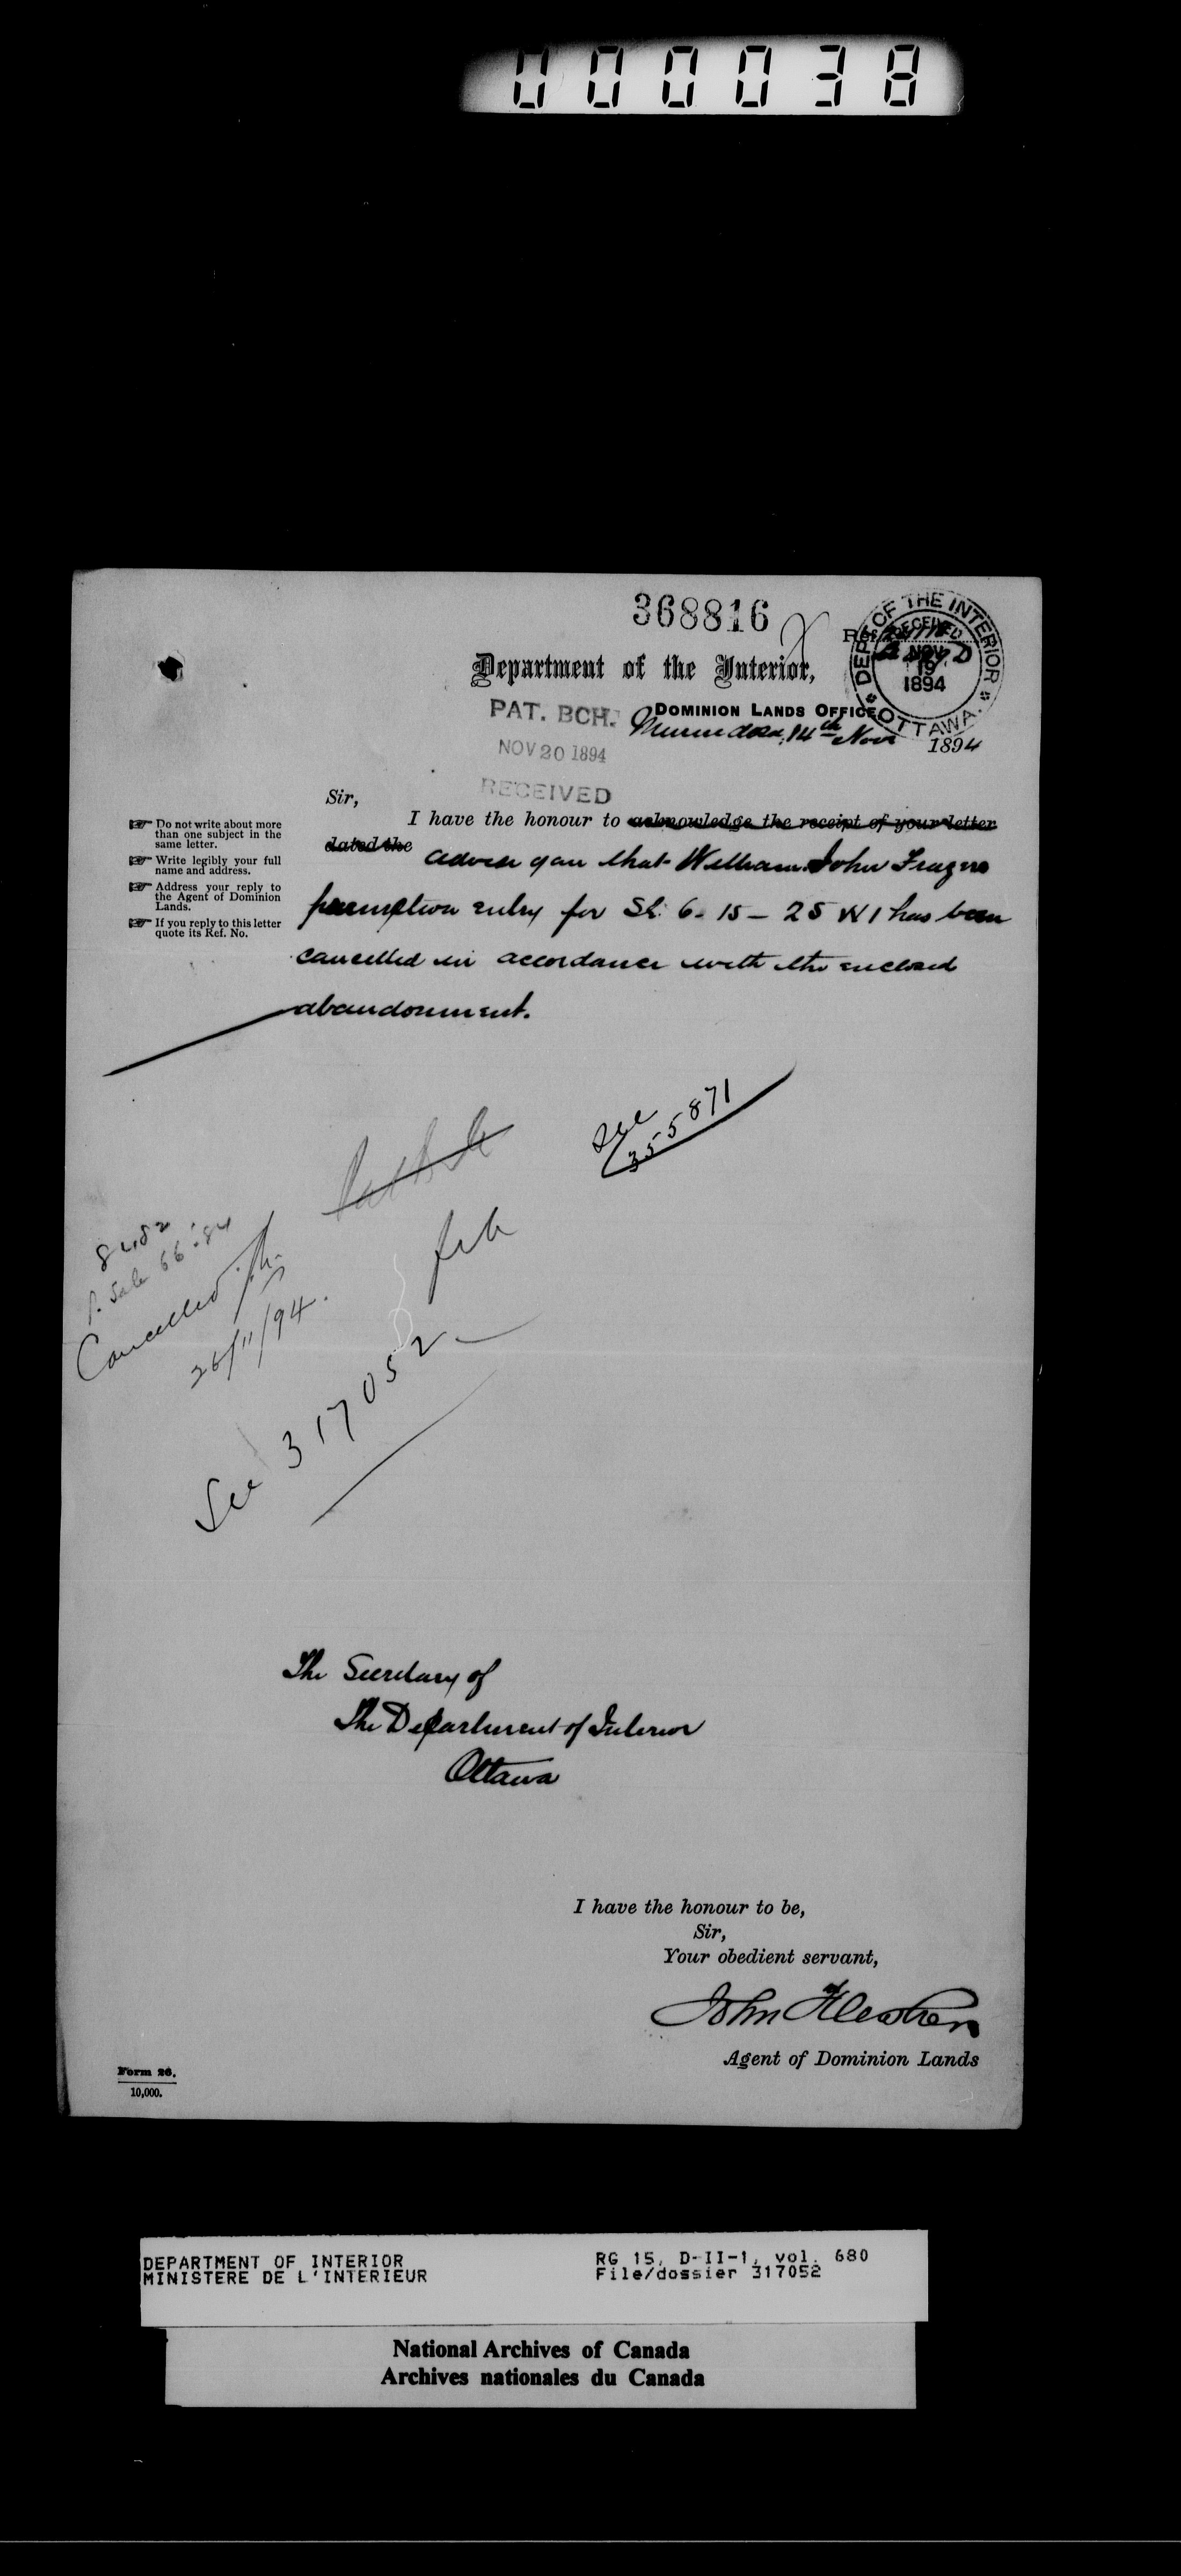 000038
368816
Department of the Interior,
DEPT OF THE INTERIOR
RECEIVED
NOV
19
1894
OTTAWA.
PAT. BCH.
NOV 20 1894
RECEIVED
DOMINION LANDS OFFICE
Minnedosa, 14th Novr 1894
Sir,
I have the honour to acknowledge the receipt of your letter
dated the
advise you that William John
preemption entry for SE 6-15-25 W1 has been
cancelled in accordance with the enclosed
abandonment.
Do not write about more
than one subject in the
same letter.
Write legibly your full
name and address.
Address your reply to
the Agent of Dominion
Lands.
If you reply to this letter
quote its Ref. No.
See
355871
P. Sale 66:84
Cancelled
26/11/94.
See 317052
The Secretary of
The Department of Interior
Ottawa
I have the honour to be,
Sir,
Your obedient servant,
John Flesher
Agent of Dominion Lands
Form 26.
10,000.
DEPARTMENT OF INTERIOR
MINISTERE DE L'INTERIEUR
RG 15, D-II-1, vol. 680
File/dossier 317052
National Archives of Canada
Archives nationales du Canada